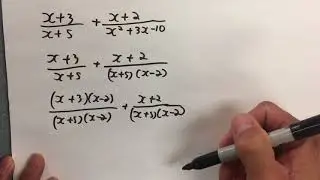 (x+3)/(x+5) + (x+2)/(x²+3x-10)
(x+3)/(x+5) + (x+2)/((x+5)(x-2))
((x+3)(x-2))/((x+5)(x-2)) + (x+2)/((x+5)(x-2))